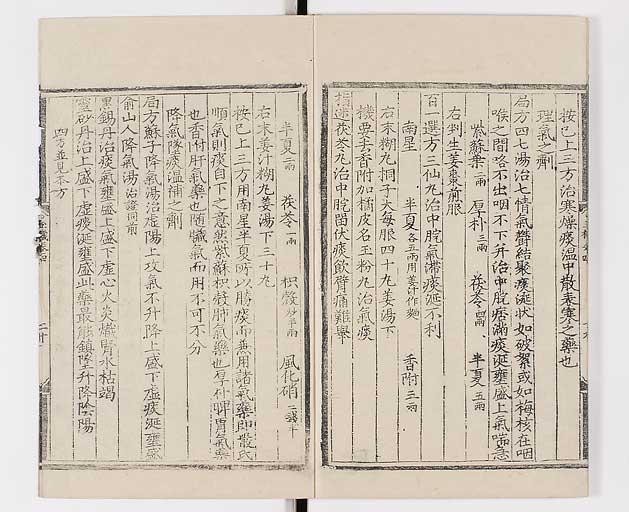 按已上三方治寒燥痰溫中散表寒之藥也
理氣之劑
局方四七湯治七情氣欝結聚痰涎狀如破絮或如梅核在咽
喉之間咯不出咽不下并治中脘痞滿痰涎壅盛上氣喘急
紫蘇葉二兩 厚朴三兩 茯苓四兩 半夏五兩
右判生姜棗煎服
百一選方三仙丸治中脘氣滯痰涎不利
南星 半夏各五兩用姜汁作麯 香附三兩
右末糊丸桐子大每服四十九姜湯下
機要去香附加橘皮名玉粉丸治氣痰
指迷茯苓丸治中脘留伏痰飮臂痛難擧
半夏二兩 茯苓一兩 枳殼炒半兩 風化硝
右末姜汁糊丸姜湯下三十九
按已上三方用南星半夏所以勝痰而兼用諸氣藥即嚴氏
順氣則痰自下之意然紫蘇枳殼肺氣藥也厚朴脾胃氣藥
也香附肝氣藥也隨臟氣而用不可不分
降氣墜痰溫補之劑
局方蘇子降氣湯治虛陽上攻氣不升降上盛下虛痰涎壅盛
俞山人降氣湯治證同前
黑錫丹治痰氣壅盛上盛下虛心火炎熾腎水枯竭
靈砂丹治上盛下虛痰涎壅盛此藥最能鎭墜升降陰陽
四方並見本方